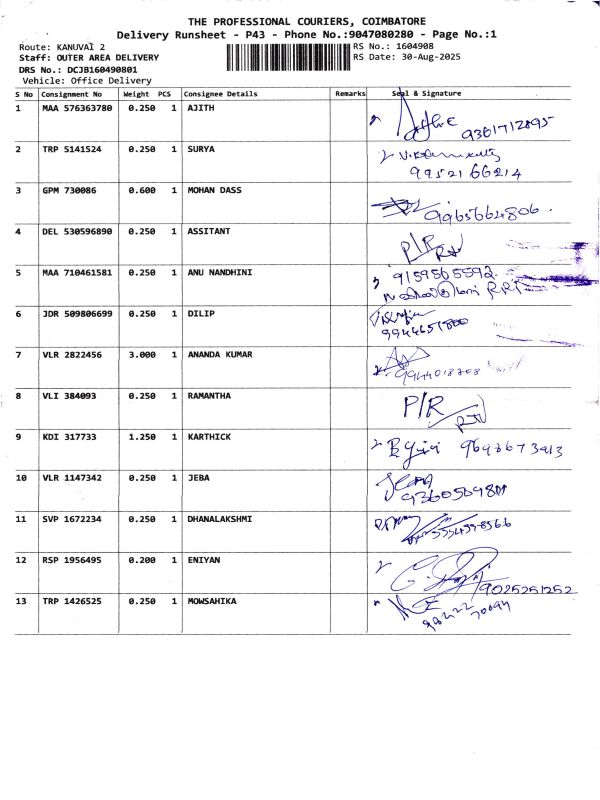 THE PROFESSIONAL COURIERS, COIMBATORE
Delivery Runsheet - P43 - Phone No.:9047080280 - Page No.:1
Route: KANUVAI 2
RS No.: 1604908
Staff: OUTER AREA DELIVERY
RS Date: 30-Aug-2025
DRS No.: DCJB160490801
Vehicle: Office Delivery
S No Consignment No Weight PCS Consignee Details Remarks Seal & Signature
1 MAA 576363780 0.250 1 AJITH
9361712895
2 TRP 5141524 0.250 1 SURYA
9952166214
3 GPM 730086 0.600 1 MOHAN DASS
9965664806
4 DEL 530596890 0.250 1 ASSITANT P/R
5 MAA 710461581 0.250 1 ANU NANDHINI 9159565592
6 JDR 509806699 0.250 1 DILIP
7 VLR 2822456 3.000 1 ANANDA KUMAR
8 VLI 384093 0.250 1 RAMANTHA P/R
9 KDI 317733 1.250 1 KARTHICK
10 VLR 1147342 0.250 1 JEBA
11 SVP 1672234 0.250 1 DHANALAKSHMI
12 RSP 1956495 0.200 1 ENIYAN
9025251252
13 TRP 1426525 0.250 1 MOWSAHIKA